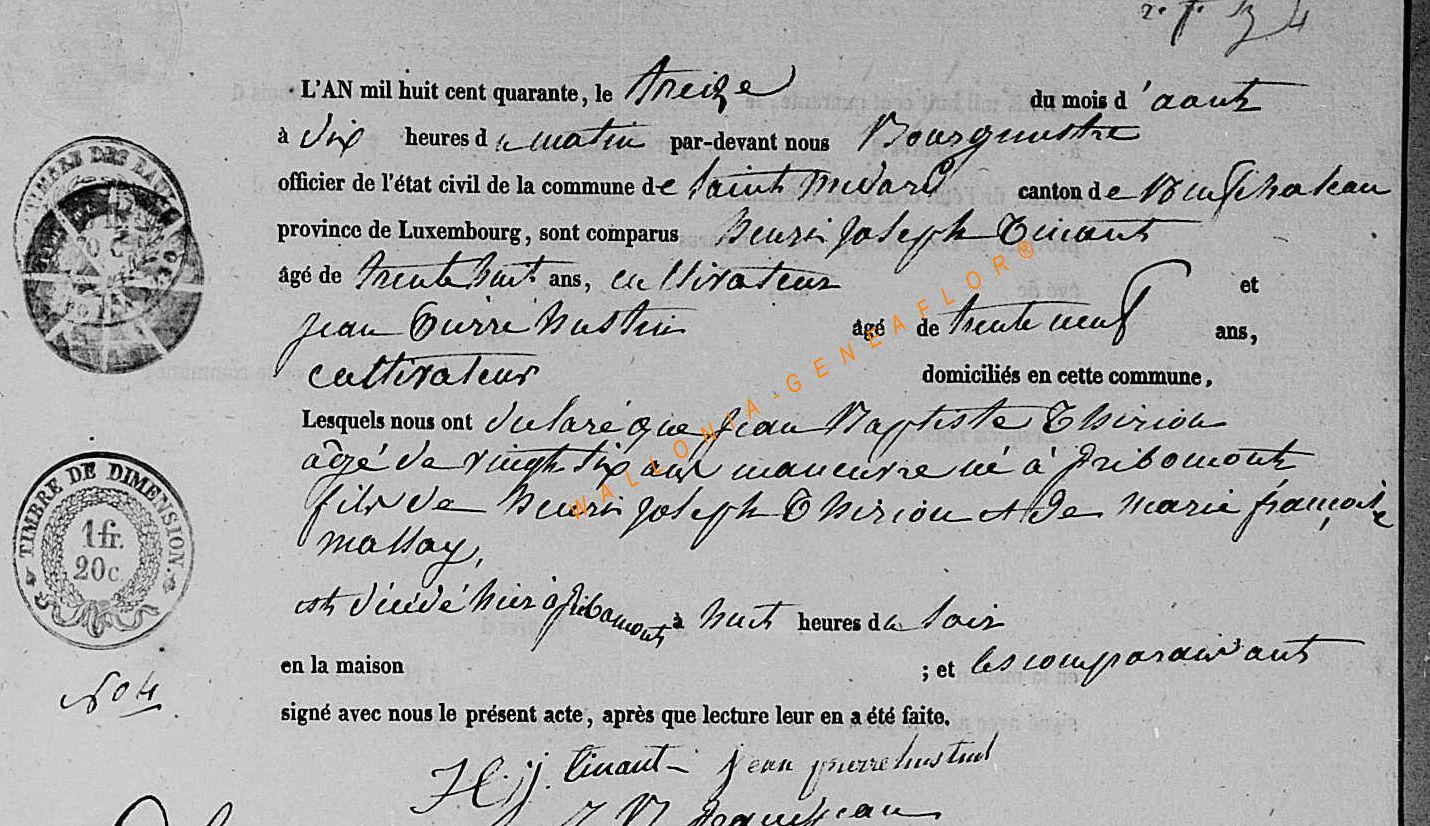 L'AN mil huit cent quarante, le treize du mois d'aout
à dix heures du matin par-devant nous Bourgmestre
officier de l'état civil de la commune de Saint Médard canton de Neufchateau
province de Luxembourg, sont comparus henri joseph Tinant
âgé de trente huit ans, cultivateur et
jean Pierre hustin âgé de trente neuf ans,
cultivateur domiciliés en cette commune,
Lesquels nous ont déclaré que jean Baptiste Thiriou
âgé de vingt six ans né à fribomont
fils de henri joseph Thiriou et de marie françoise
massay,
est décédé hier à fribomont à huit heures du soir
en la maison ; et les comparaissants
signé avec nous le présent acte, après que lecture leur en a été faite.
H. j. tinant jean pierre
TIMBRE DES
TIMBRE DE DIMENSION.
1 fr.
20 c.
No 4
WALLONIA-GENEAFLOR®